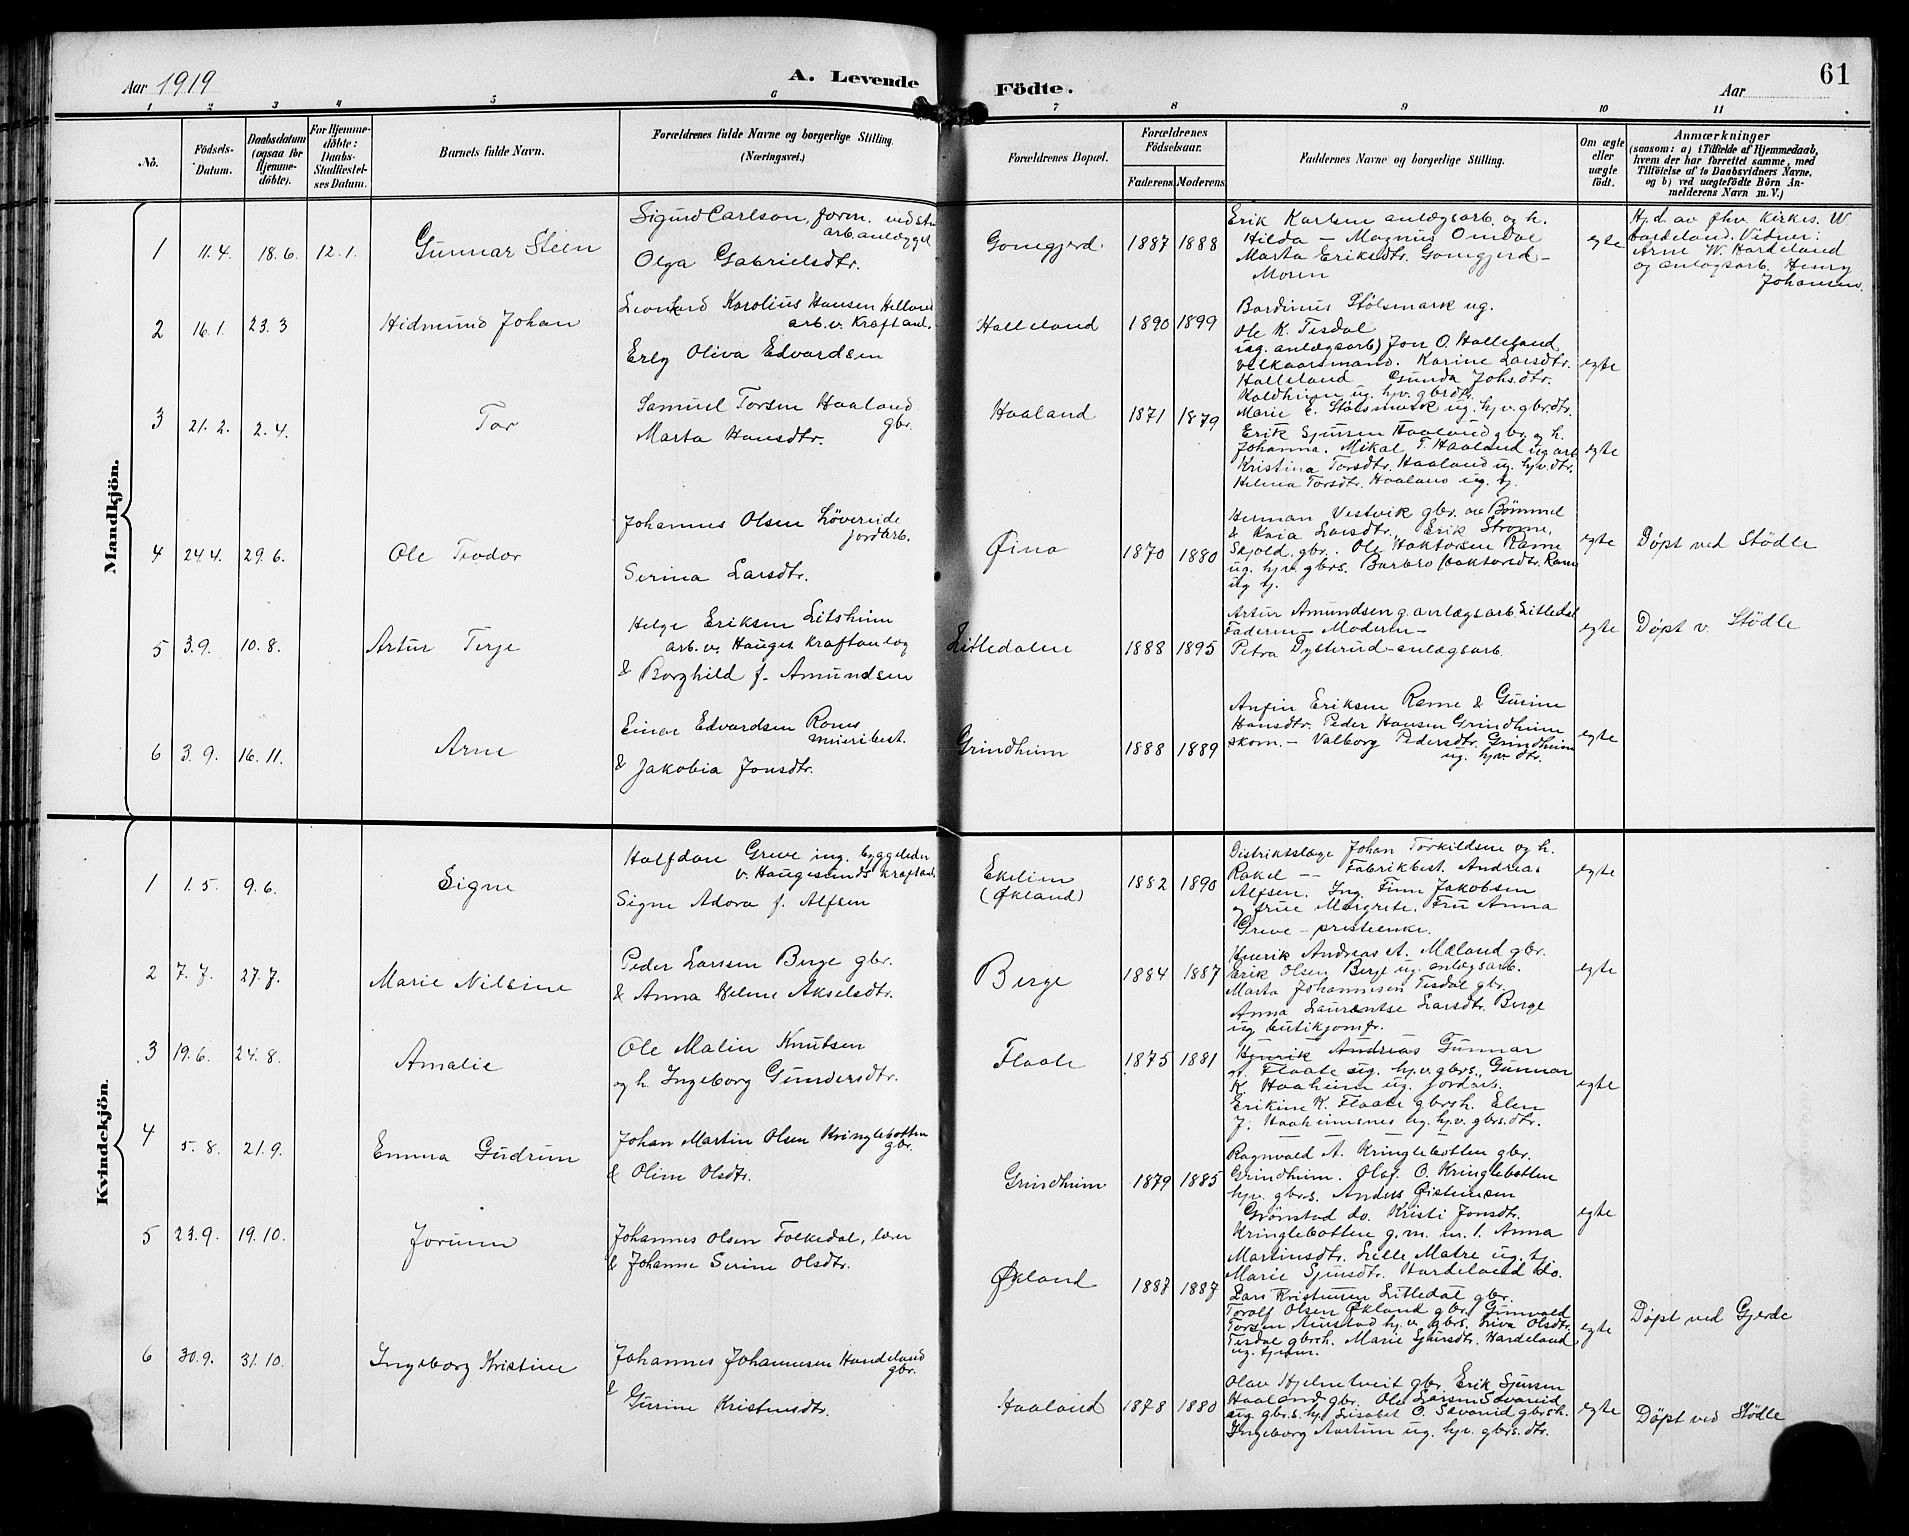 Aar 1919
A. Levende
Födte.
Aar
61
1 2 3 4 5 6 7 8 9 10 11
No.
Födsels-
Datum.
Daabsdatum
(ogsaa for
Hjemme-
döbte).
For Hjemme-
döbte:
Daabs-
Stadfæstel-
ses Datum.
Barnets fulde Navn.
Forældrenes fulde Navne og borgerlige Stilling.
(Næringsvei.)
Forældrenes Bopæl.
Forældrenes
Födselsaar.
Faderens. Moderens.
Faddernes Navne og borgerlige Stilling.
Om ægte
eller
uægte
födt.
Anmærkninger
(saasom: a) i Tilfælde af Hjemmedaab,
hvem der har forrettet samme, med
Tilföielse af to Daabsvidners Navne.
og b) ved uægtefödte Börn An-
melderens Navn m. V.)
Mandkjön.
1 11.4. 18.6. 12.1. Gunnar Steen
Sigurd Carlson, form. ved
arb.anlægget
Olga Gabrielsdtr.
Gomgjerd 1887 1888
Erik Karlsen anlægsarb. og h.
Hilda — Magnus Omdal
Marta Eriksdtr. Gomgjerd –
Moren
egte
Hj.d. av fhv. Kirkes. W
Hardeland. Vidner:
Arne W. Hardeland
og anlægsarb. Henry
Johansen.
2 16.1. 23.3 Hidmund Johan
Leonhard Karolius Hansen Helland
arb. v. Kraftanl.
Erly Oliva Edvardsen
Halleland 1890 1899
Bardinus Stølsmark ug.
Ole K. Tisdal
ug. anlægsarb) Jon O. Halleland
velkaarsmand. Karine Larsdtr.
Halleland Gunda Johs.dtr.
Koldheim ug. hj.v. gbrdtr.
Marie E. Stølsmark ug. hj.v. gbr.dtr.
egte
3 21.2. 2.4. Tor
Samuel Torsen Haaland
gbr.
Marta Hansdtr.
Haaland 1871 1879
Erik Sjursen Haaland gbr. og h.
Johanna. Mikal T. Haaland ug arb.
Kristina Torsdtr. Haaland ug. hj.v. dtr.
Helma Torsdtr. Haaland ug. tj.
egte
4 24.4. 29.6. Ole Teodor
Johannes Olsen Løvereide
jordarb.
Serina Larsdtr.
Øina 1870 1880
Herman Vestvik gbr. av Bømmel
& Kaia Larsdtr., Erik Strøme,
Skjold, gbr. Ole Haktorsen Rame
ug. hj.v. gbrs. Barbro Haktorsdtr. Rame
ug tj.
egte
Døpt ved Stødle
5 3.9. 10.8. Artur Terje
Helge Eriksen Litsheim
arb. v. Hauges. Kraftanlæg
& Borghild f. Amundsen
Litledalen 1888 1895
Artur Amundsen g. anlægsarb. Litledal
Faderen – Moderen –
Petra Dysterud – anlægsarb.
egte
Døpt v. Stødle
6 3.9. 16.11. Arne
Einar Edvardsen Rame
mueribest.
& Jakobia Jonsdtr.
Grindheim 1888 1889
Anfin Eriksen Rame & Gurine
Hansdtr. Peder Hansen Grindheim
skom. – Valborg Pedersdtr. Grindheim
ug. hj.v. dtr.
egte
Kvindekjön.
1 1.5. 9.6. Signe
Halfdan Greve ing. byggeleder
v. Haugesunds Kraftanl.
Signe Adora f. Alfsen
Ekelien
(Økland)
1882 1890
Distriktslæge Johan Torkildsen og h.
Rakel — Fabrikbest. Andreas
Alfsen. Ing. Finn Jakobsen
og frue Margrete. Fru Anna
Greve – presteenke.
egte
2 7.7. 27.7. Marie Nilsine
Peder Larssen Berge gbr.
& Anna Helene Akselsdtr.
Berge 1884 1887
Henrik Andreas A. Mæland gbr.
Erik Olsen Berge ug. anlægsarb.
Marta Johannesen Tisdal gbr.
Anna Laurentse Larsdtr. Berge
ug butikjomfr.
egte
3 19.6. 24.8. Amalie
Ole Malin Knutsen
og h. Ingeborg Gundersdtr.
Flaate 1875 1881
Henrik Andreas Gunnar
Flaate ug. hj.v. gbrs., Gunnar
K Haaheim ug. jordarb.
Erikine K. Flaate gbrsh. Elen
J. Haaheimsnes ug. hj.v. gbrs.dtr.
egte
4 5.8. 21.9. Emma Gudrun
Johan Martin Olsen Kringlebotten
gbr.
& Oline Olsdtr.
Grindheim 1879 1885
Ragnvald A. Kringlebotten gbr.
Grindheim. Olaf O. Kringlebotten
hj.v. gbr.s. Anders Øistensen
Grønstad do. Kristi Jonsdtr.
Kringlebotten g. m. nr. 1. Anna
Martinsdtr. Lille Matre ug. tj.
Marie Sjursdtr. Hardeland do.
egte
5 23.9. 19.10. Jorunn
Johannes Olsen Folkedal, lærer
& Johanne Serine Olsdtr.
Økland 1887 1887
Lars Kristensen Litledal gbr.
Toralf Olsen Økland gbr. Gunvald
Torsen Austad hj.v. gbrs. Liva Olsdtr.
Tisdal gbrsh. Marie Sjursdtr. Hardeland
ug. tjener.
egte
Døpt ved Gjerde
6 30.9. 31.10. Ingeborg Kristine
Johannes Johannesen Handeland
gbr.
& Gurine Kristensdtr.
Haaland 1878 1880
Olav Hjelmtveit gbr. Erik Sjursen
Haaland gbr. Ole Larsen Sævareid
ug. gbr.s. hj. Lisabet O. Sævareid gbrsh.
Ingeborg Aartun ug. hj.v. gbrs.dtr.
egte
Døpt ved Stødle